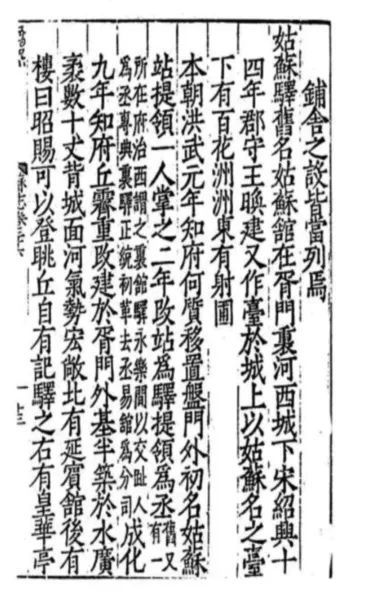 鋪舍之設皆當列焉
姑蘇驛舊名姑蘇館在胥門裏河西城下宋紹興十
四年郡守王㬇建又作臺於城上以姑蘇名之臺
下有百花洲洲東有射圃
本朝洪武元年知府何質移置盤門外初名姑蘇
站提領一人掌之二年改站為驛提領為丞舊又有一
所在府治西謂之裏館驛永樂間以交趾人為丞專典裏驛正統初革去丞易館為分司成化
九年知府丘霽重改建於胥門外基半築於水廣
袤數十丈背城面河氣勢宏敞北有延賓館後有
樓曰昭賜可以登眺丘自有記驛之右有皇華亭